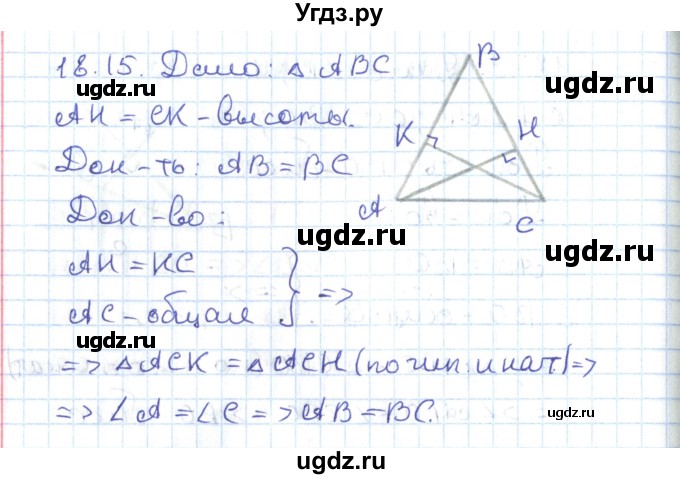 Угдз.ру
18.15. Дано: △ ABC
AH = CK - высоты.
Док-ть: AB = BC
Док-во:
AH = KC
AC - общая } =>
=> △ACK = △ACH (по гип. и кат.) =>
=> ∠A = ∠C => AB = BC.
B
K
H
A
C
ugdz.ru
ugdz.ru
ugdz.ru
ugdz.ru
ugdz.ru
ugdz.ru
ugdz.ru
ugdz.ru
ugdz.ru
ugdz.ru